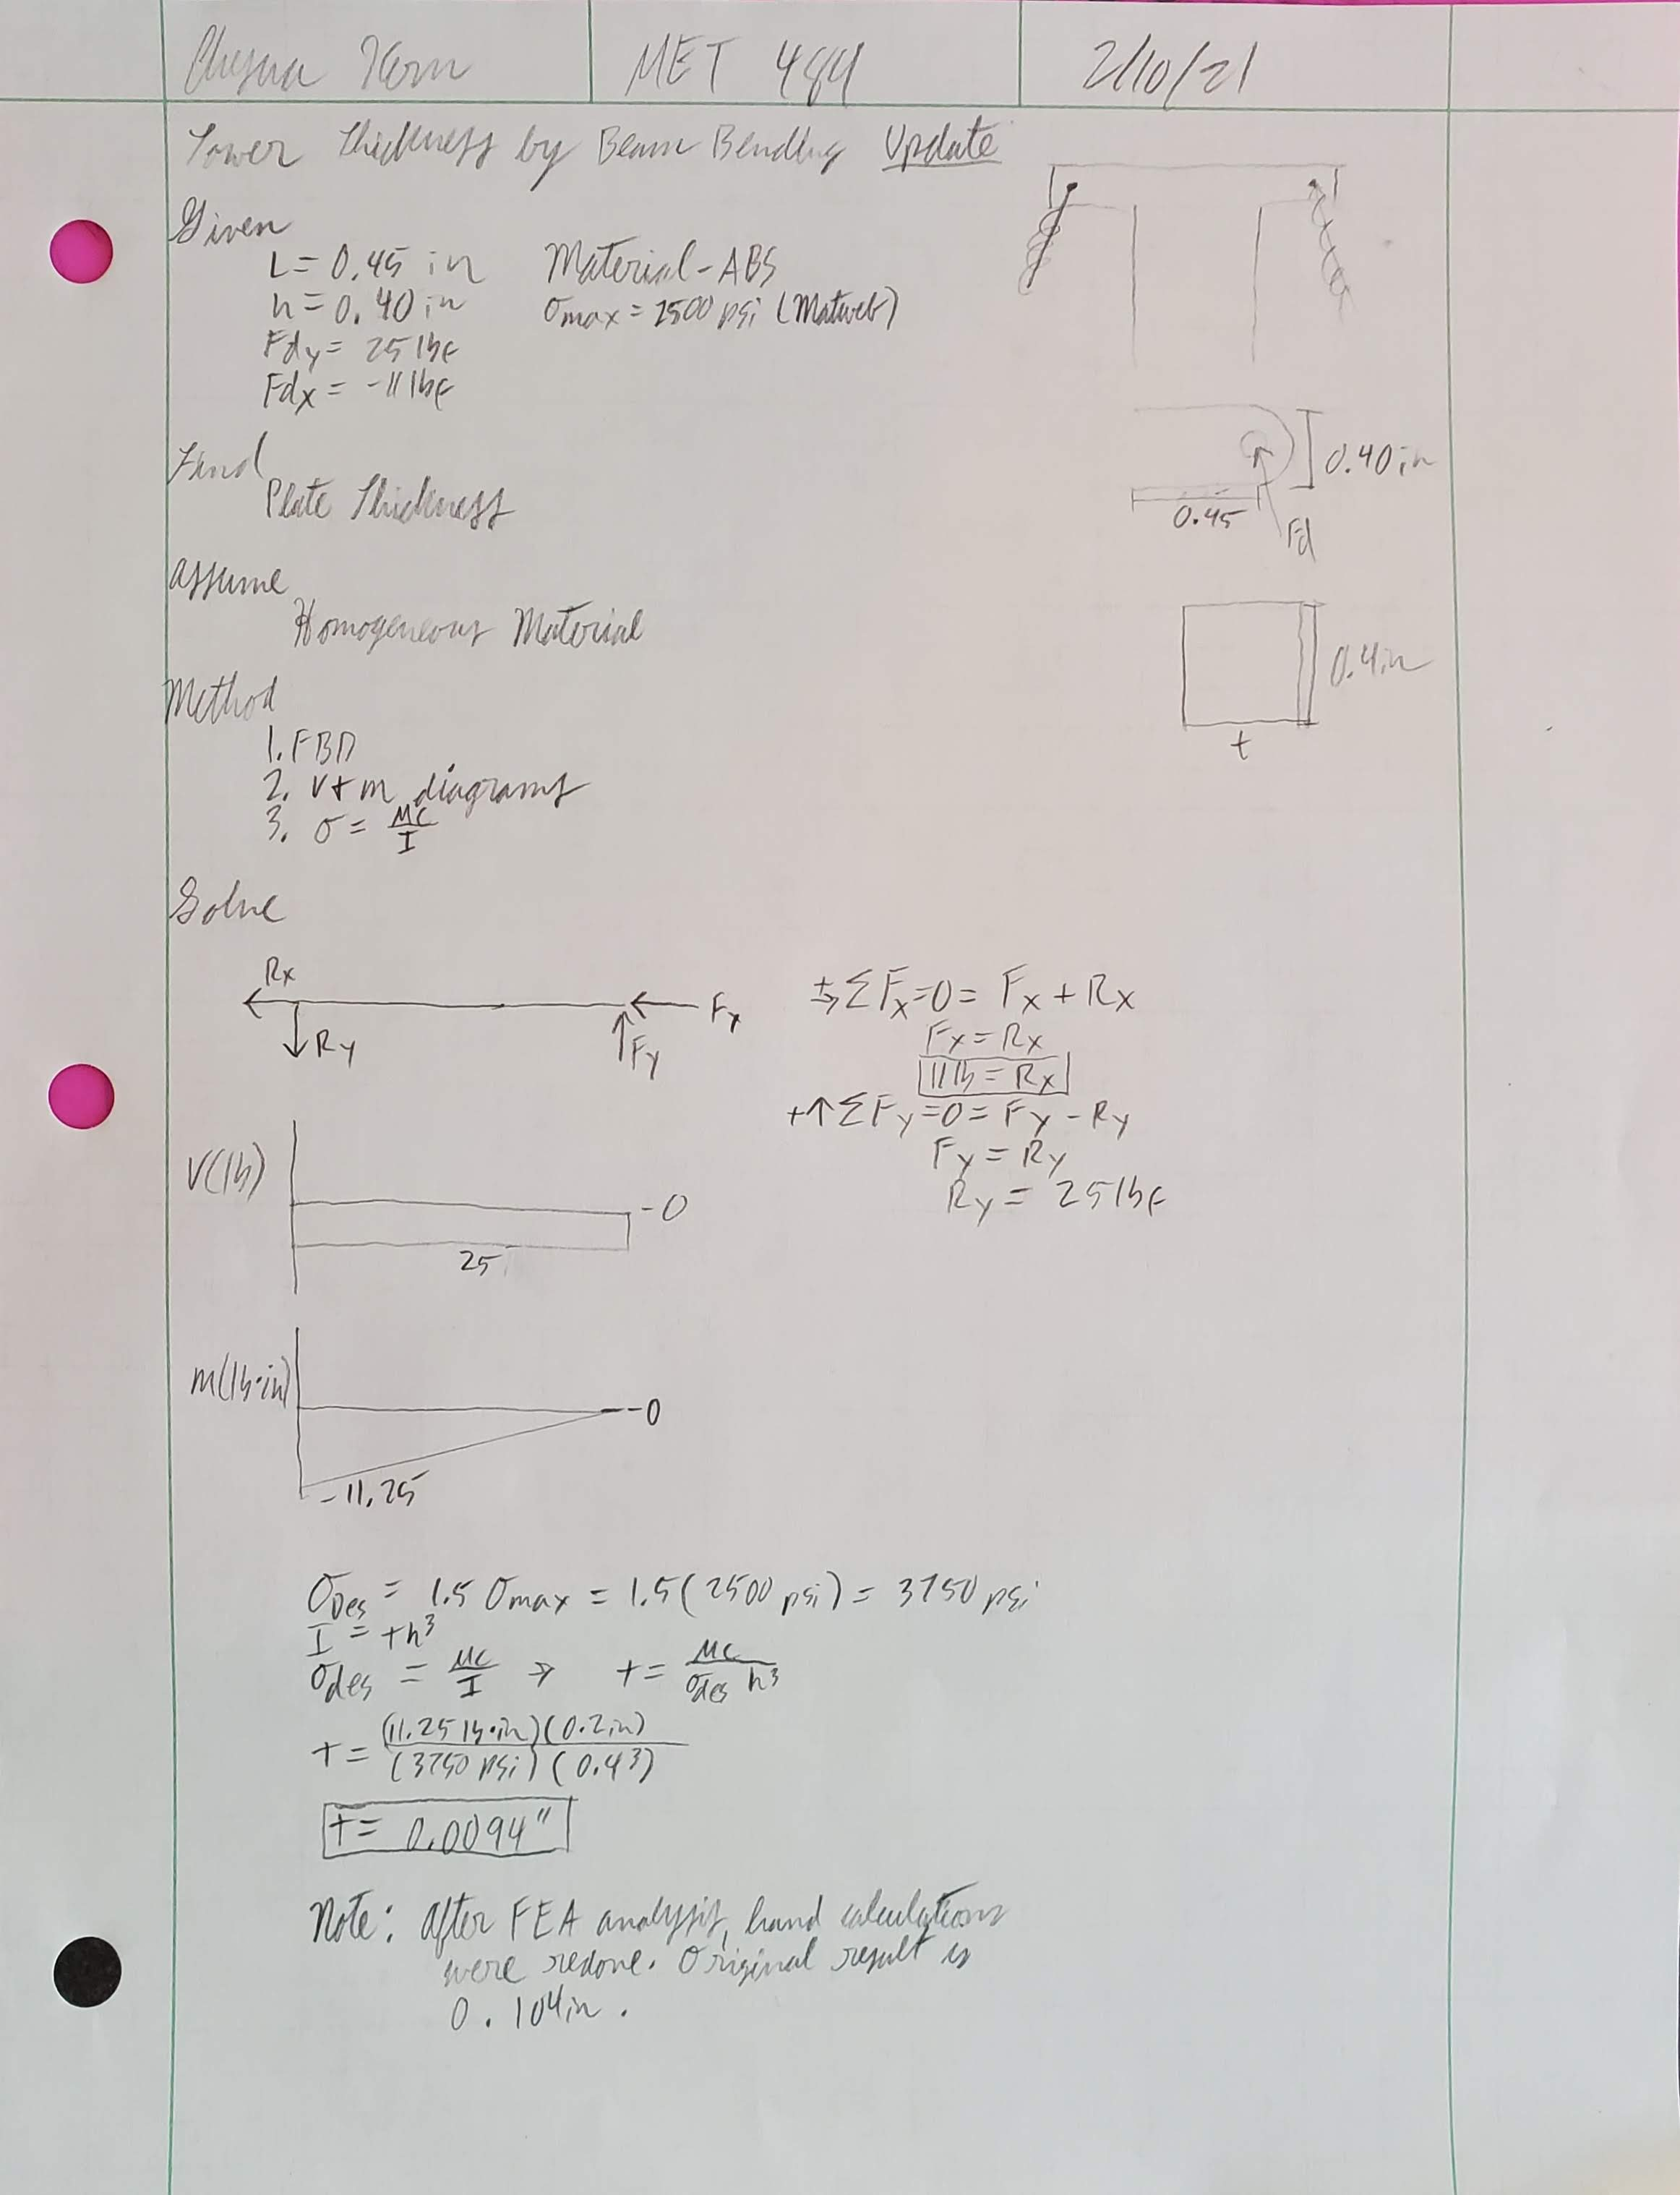 MET 484
2/10/21
Tower Thickness by Beam Bending Update
Given
L = 0.45 in Material - ABS
h = 0.40 in σmax = 2500 psi (Matweb)
Fdy = 25 lbf
Fdx = -11 lbf
0.40 in
0.45
Fd
Find
Plate Thickness
Assume
Homogeneous Material
0.4in
t
Method
1. FBD
2. V + m diagrams
3. σ = Mc/I
Solve
Rx
Ry
Fx
Fy
+→ ΣFx = 0 = Fx + Rx
Fx = Rx
11 lb = Rx
+↑ ΣFy = 0 = Fy - Ry
Fy = Ry
Ry = 25 lbf
V(lb)
-0
25
m(lb·in)
-0
-11.25
σDes = 1.5 σmax = 1.5(2500 psi) = 3750 psi
I = th³
σdes = Mc/I → t = Mc/σdes h³
t = (11.25 lb·in)(0.2in)/(3750 psi)(0.4³)
t = 0.0094"
Note: After FEA analysis, hand calculations
were redone. Original result is
0.104in.